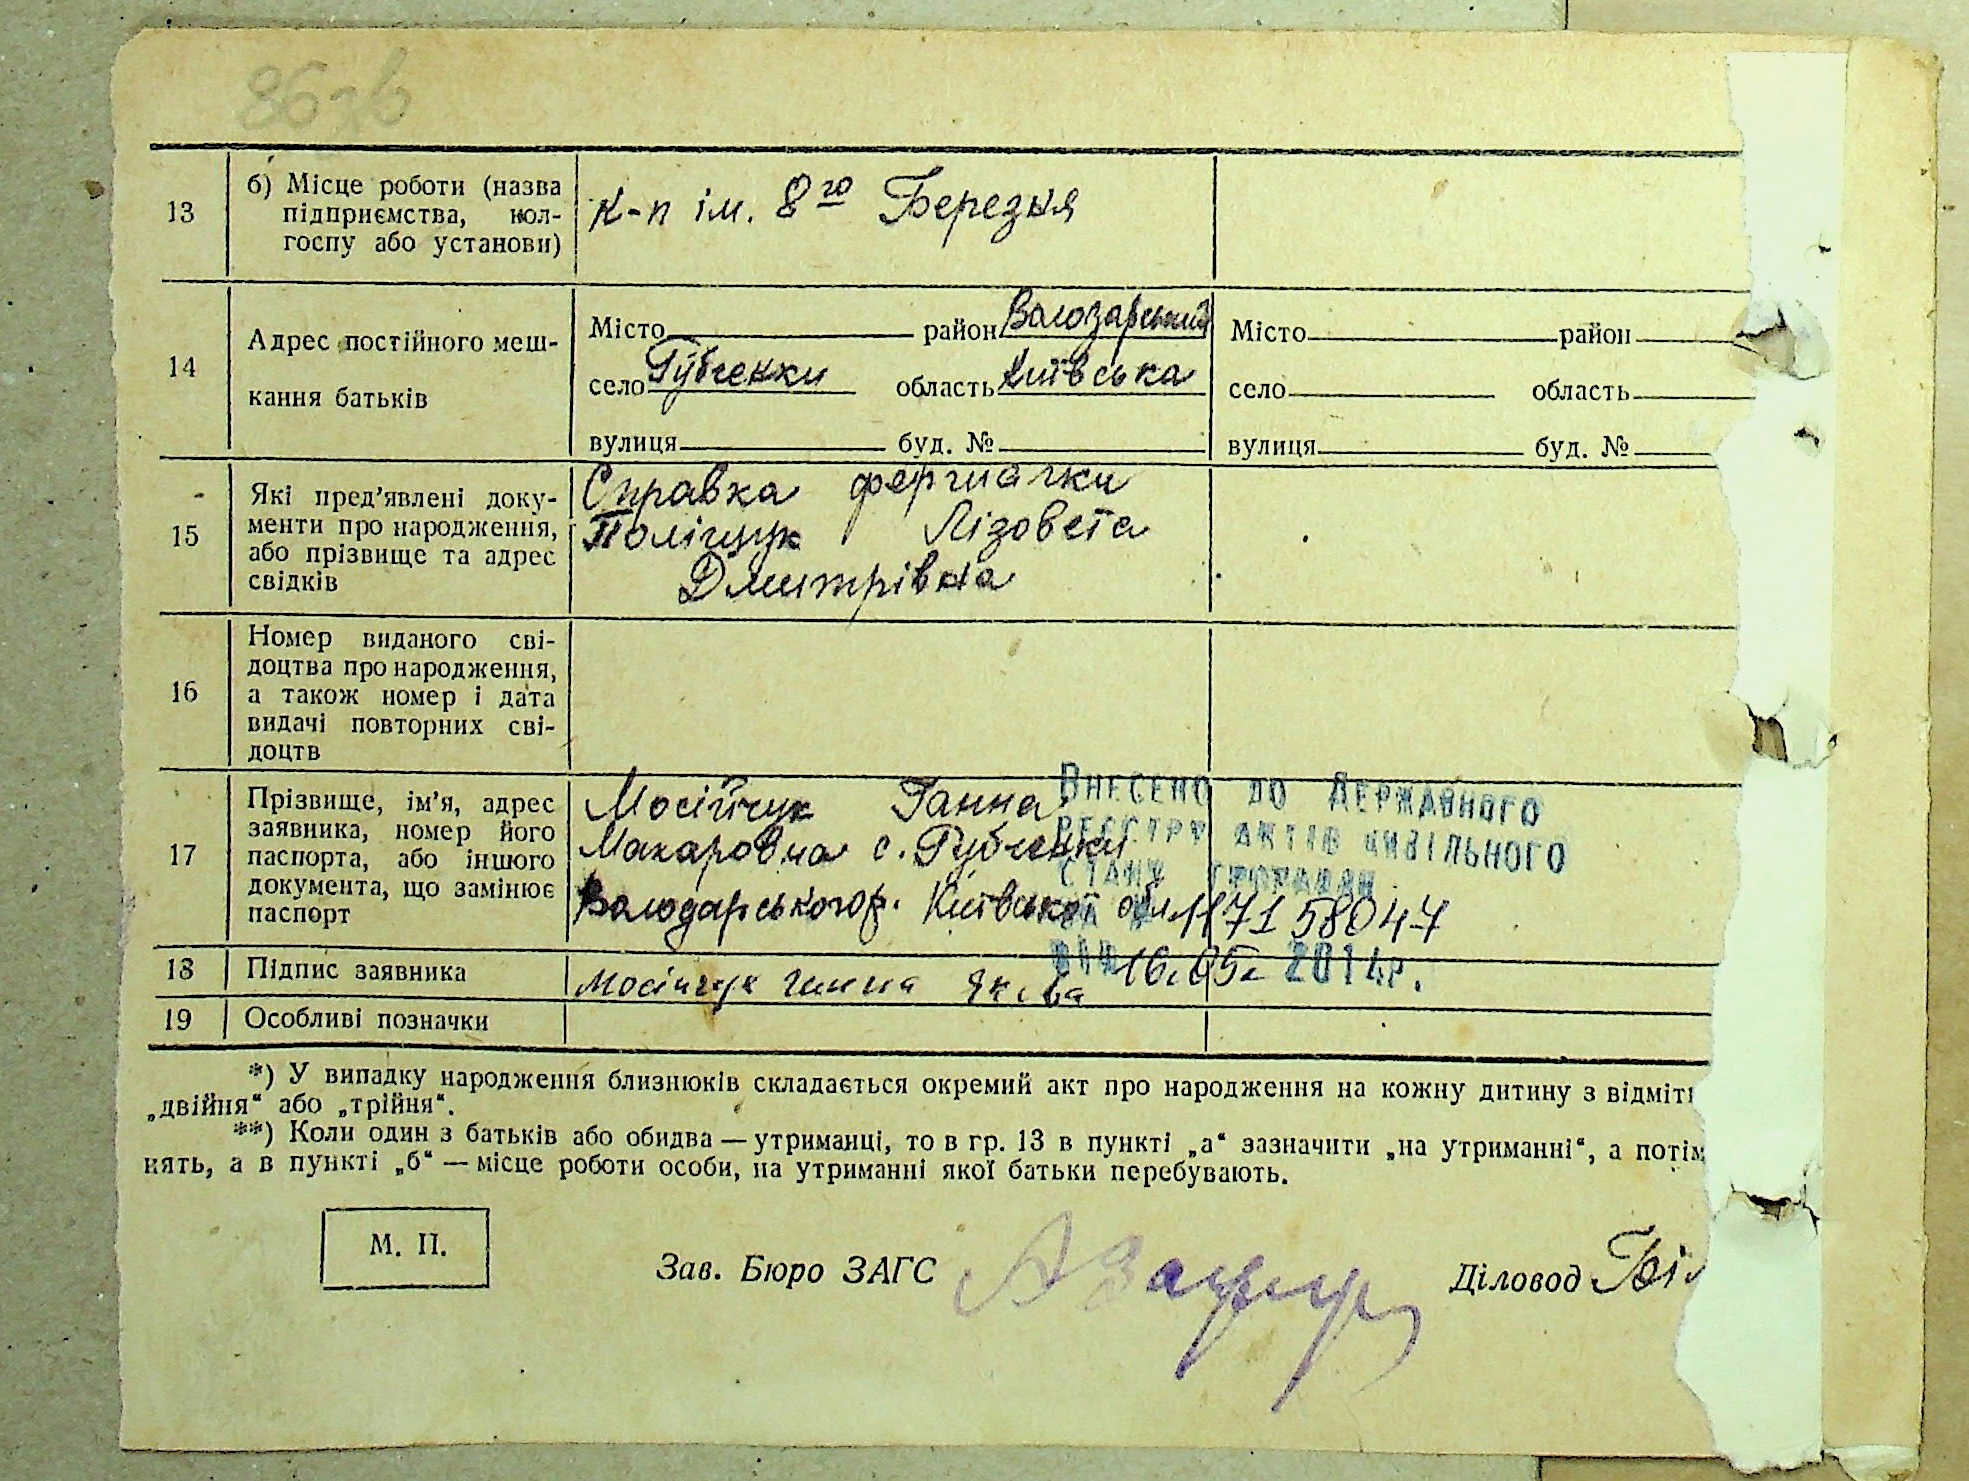 13
б) Місце роботи (назва
підприємства, кол-
госпу або установи)
к-п ім. 8го Березня
14
Адрес постійного меш-
кання батьків
Місто район Володарський
село Губченки область Київська
вулиця буд. №
Місто район
село область
вулиця буд. №
15
Які пред'явлені доку-
менти про народження,
або прізвище та адрес
свідків
Справка
Поліщук Лізовета
Дмитрівна
16
Номер виданого сві-
доцтва про народження,
а також номер і дата
видачі повторних сві-
доцтв
17
Прізвище, ім'я, адрес
заявника, номер його
паспорта, або іншого
документа, що замінює
паспорт
Мосійчук Ганна
Макаровна с. Губченки
Володарського р. Київської обл.
Внесено до Державного
реєстру актів цивільного
стану громадян
58047
від 16.05. 2014р.
18
Підпис заявника
Мосійчук Ганна
19
Особливі позначки
*) У випадку народження близнюків складається окремий акт про народження на кожну дитину з відміт
„двійня“ або „трійня“.
**) Коли один з батьків або обидва — утриманці, то в гр. 13 в пункті „а“ зазначити „на утриманні“, а потім
нять, а в пункті „б“ — місце роботи особи, на утриманні якої батьки перебувають.
М. П.
Зав. Бюро ЗАГС
Діловод Біл